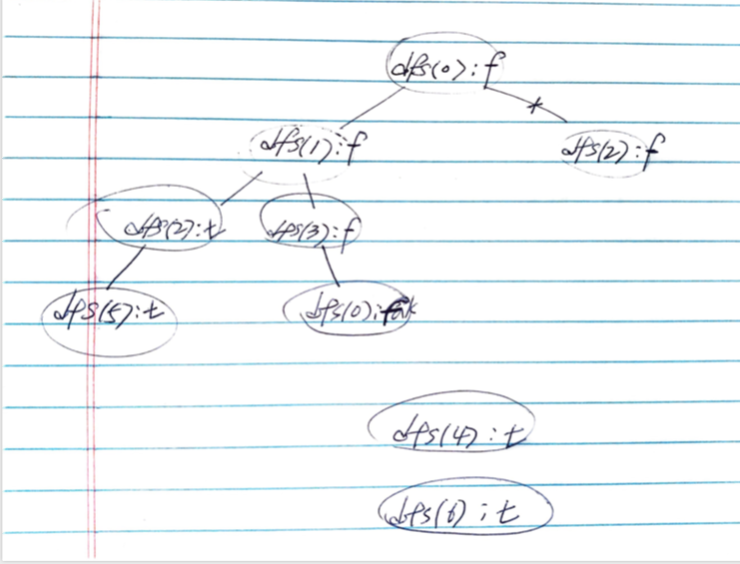 dfs(0):f
dfs(1):f dfs(2):f
dfs(2):t dfs(3):f
dfs(5):t dfs(0):
dfs(4):t
dfs(6):t